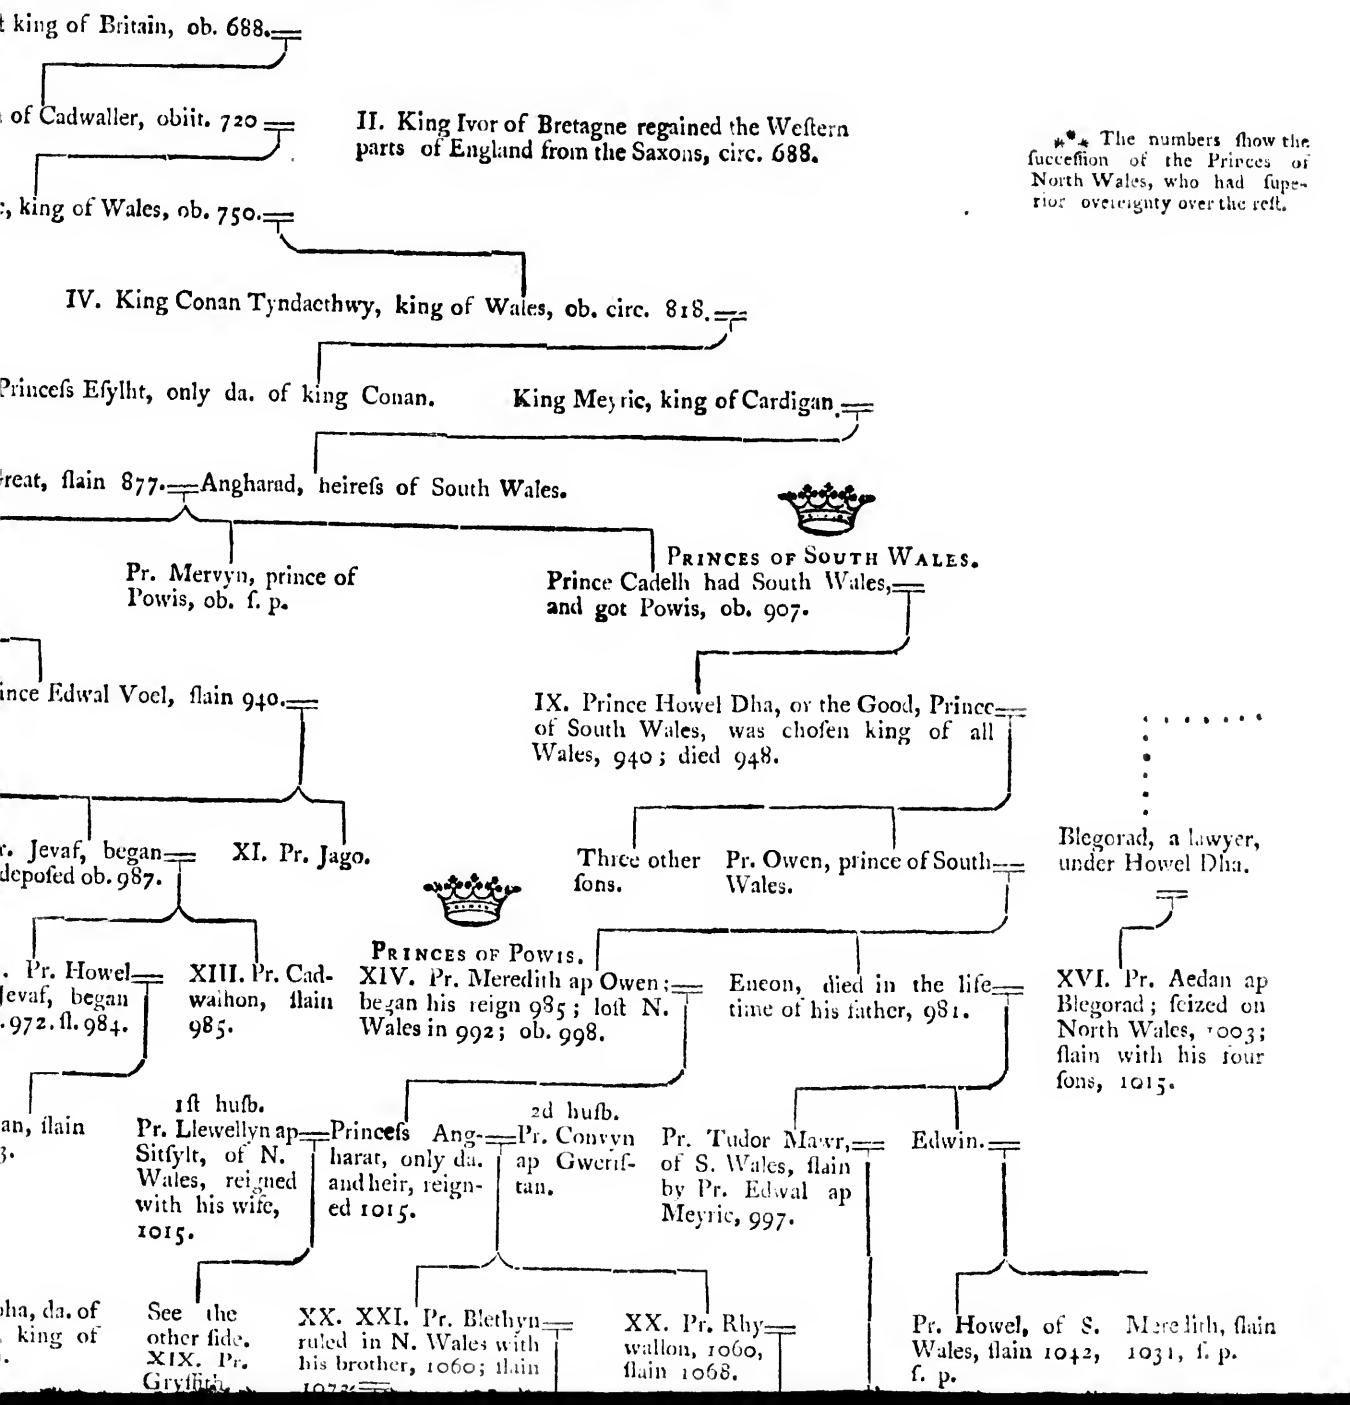 king of Britain, ob. 688.
of Cadwaller, obiit. 720
II. King Ivor of Bretagne regained the Weſtern
parts of England from the Saxons, circ. 688.
*** The numbers ſhow the
ſucceſſion of the Princes of
North Wales, who had ſupe-
rior overeignty over the reſt.
king of Wales, ob. 750.
IV. King Conan Tyndaethwy, king of Wales, ob. circ. 818.
Princeſs Eſylht, only da. of king Conan.
King Meyric, king of Cardigan
reat, ſlain 877. Angharad, heireſs of South Wales.
PRINCES OF SOUTH WALES.
Pr. Mervyn, prince of
Powis, ob. ſ. p.
Prince Cadelh had South Wales,
and got Powis, ob. 907.
ince Edwal Voel, ſlain 940.
IX. Prince Howel Dha, or the Good, Prince
of South Wales, was choſen king of all
Wales, 940; died 948.
r. Jevaf, began
depoſed ob. 987.
XI. Pr. Jago.
Three other
ſons.
Pr. Owen, prince of South
Wales.
Blegorad, a lawyer,
under Howel Dha.
PRINCES OF POWIS.
. Pr. Howel
Jevaf, began
. 972. ſl. 984.
XIII. Pr. Cad-
walhon, ſlain
985.
XIV. Pr. Meredith ap Owen;
began his reign 985; loſt N.
Wales in 992; ob. 998.
Eneon, died in the life
time of his father, 981.
XVI. Pr. Aedan ap
Blegorad; ſeized on
North Wales, 1003;
ſlain with his four
ſons, 1015.
an, ſlain
3.
1ſt huſb.
Pr. Llewellyn ap
Sitſylt, of N.
Wales, reigned
with his wife,
1015.
Princeſs Ang-
harat, only da.
and heir, reign-
ed 1015.
2d huſb.
Pr. Convyn
ap Gweriſ-
tan.
Pr. Tudor Mawr,
of S. Wales, ſlain
by Pr. Edwal ap
Meyric, 997.
Edwin.
ha, da. of
king of
See the
other ſide.
XIX. Pr.
Gryffith
XX. XXI. Pr. Blethyn
ruled in N. Wales with
his brother, 1060; ſlain
1073.
XX. Pr. Rhy
wallon, 1060,
ſlain 1068.
Pr. Howel, of S.
Wales, ſlain 1042,
ſ. p.
Meredith, ſlain
1031, ſ. p.